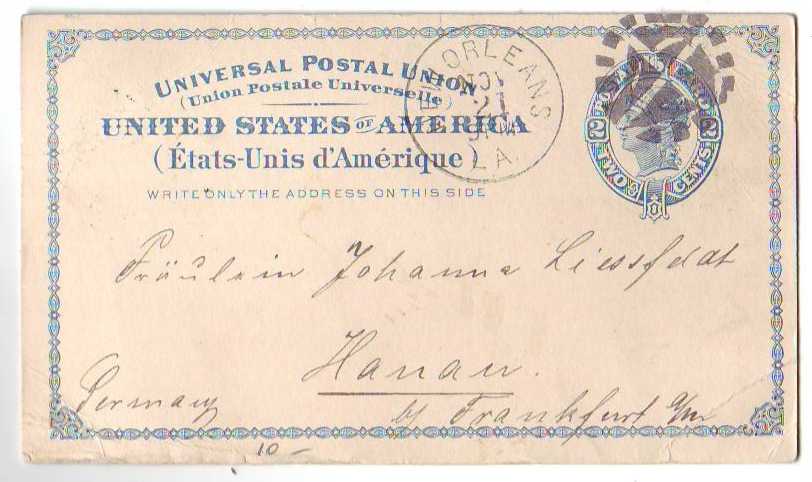 UNIVERSAL POSTAL UNION
(Union Postale Universelle)
UNITED STATES OF AMERICA
(États-Unis d'Amérique)
WRITE ONLY THE ADDRESS ON THIS SIDE
ORLEANS
NOV
21
LA.
POSTAL CARD
2 2
TWO CENTS
Fräulein Johanna Liessfeldt
Hanau.
Germany
b/ Frankfurt a/m
10 –